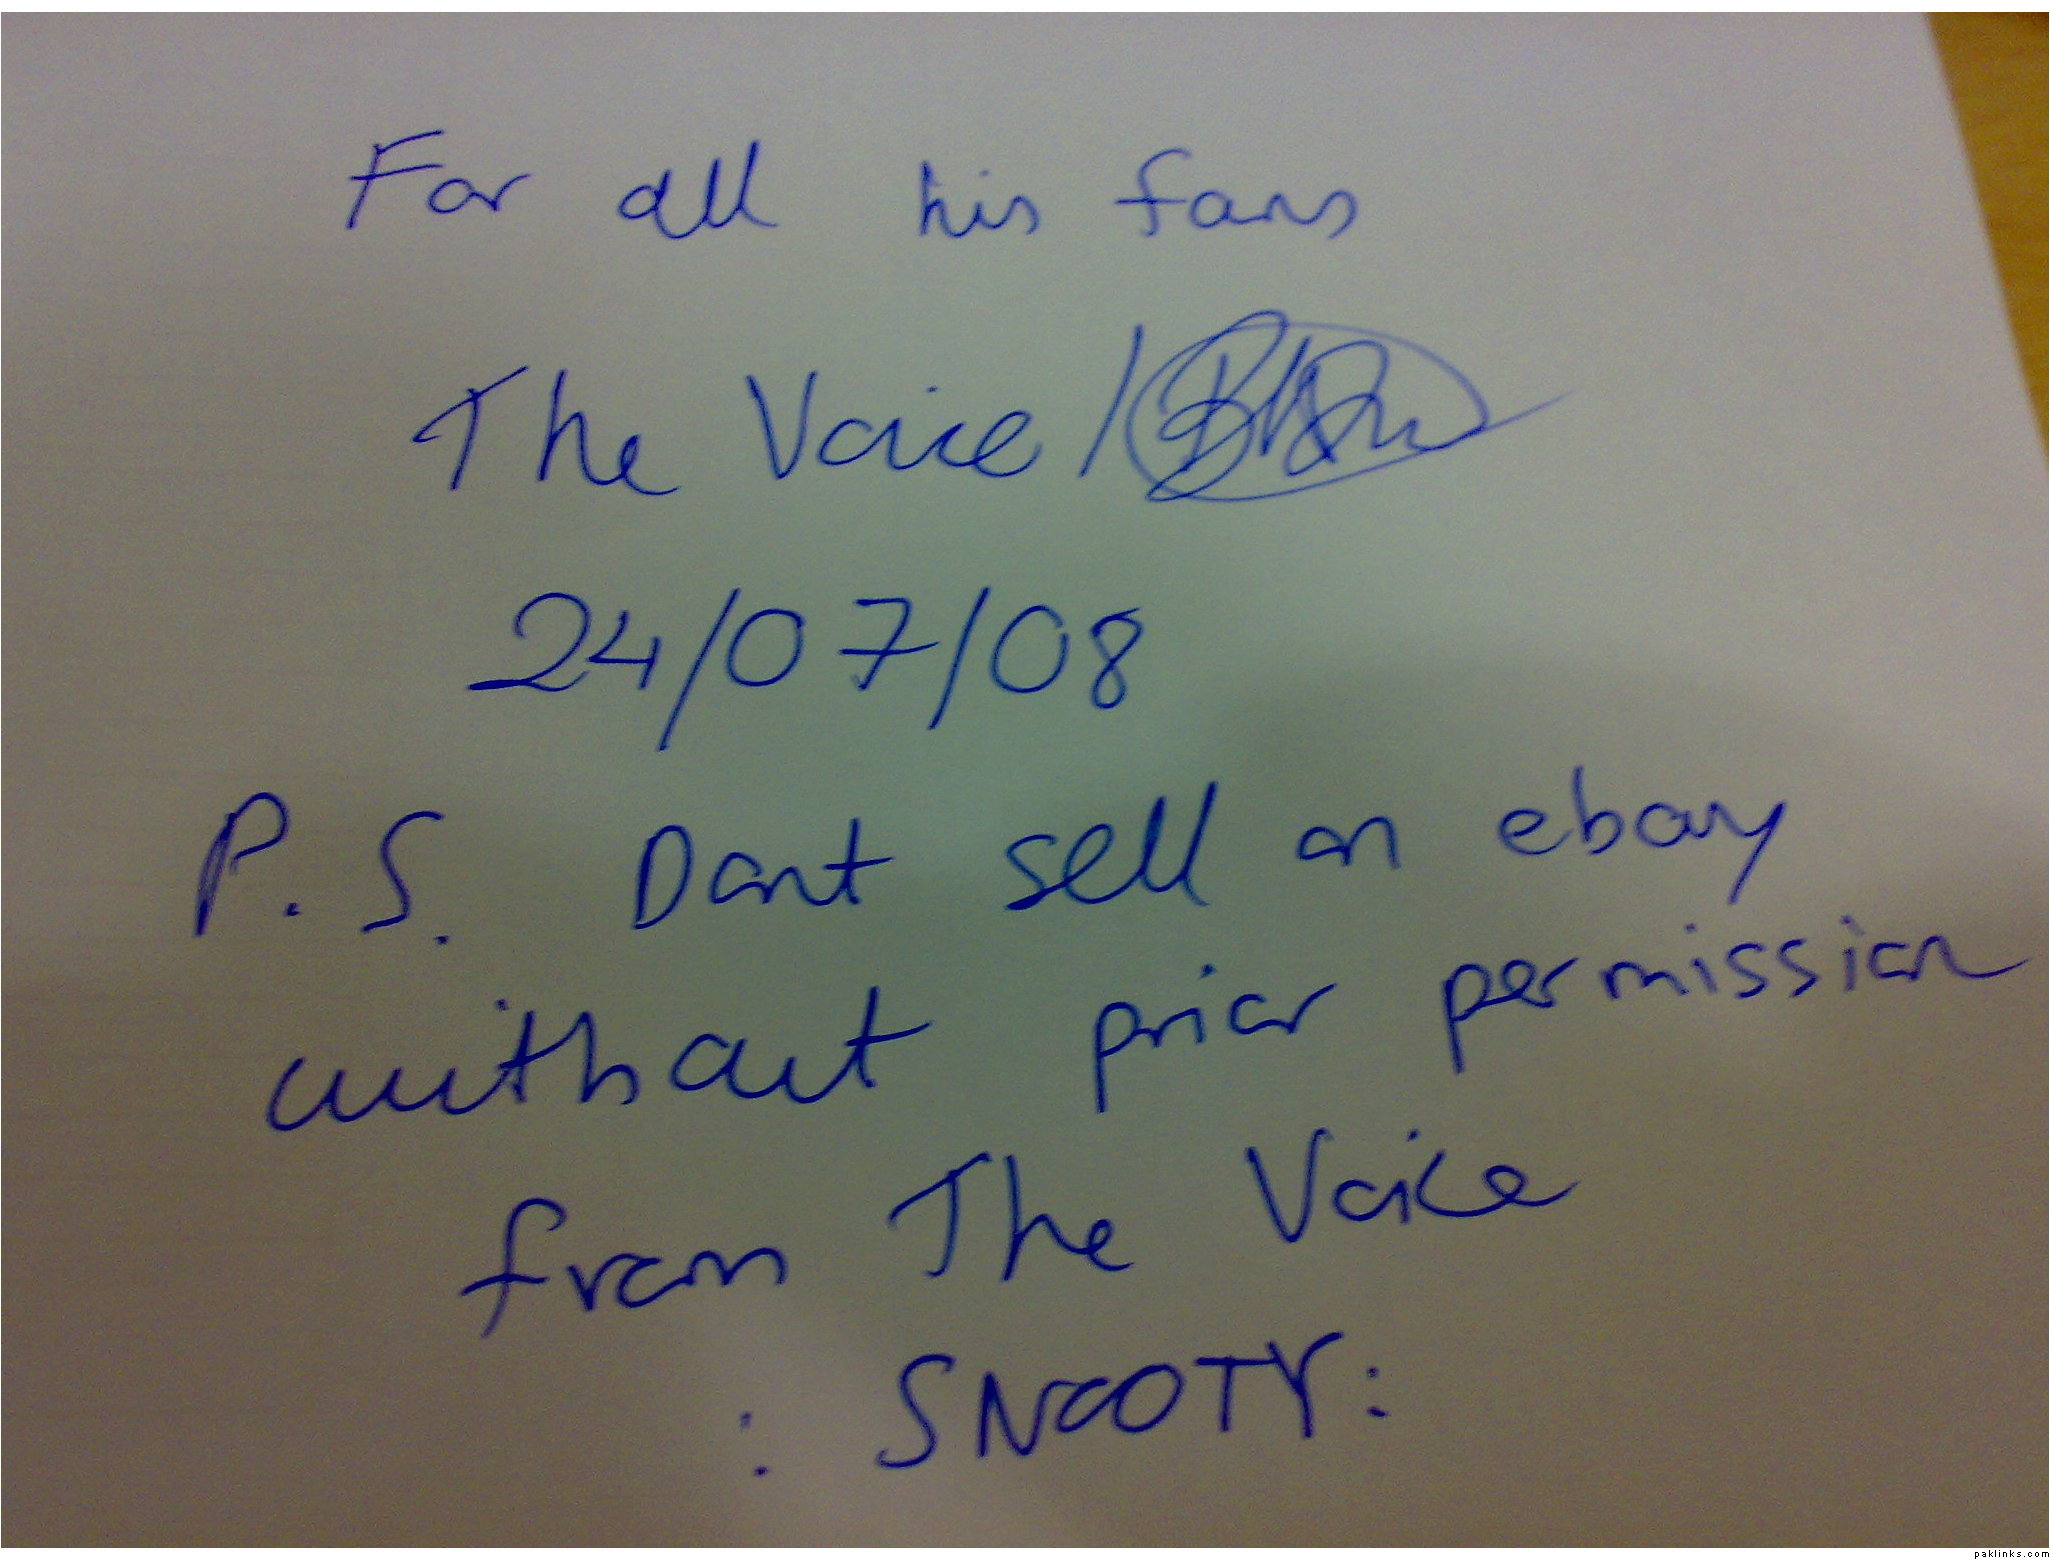 For all his fans
The Voice /
24/07/08
P.S. Dont sell on ebay
without prior permission
from The Voice
: SNOOTY:
paklinks.com